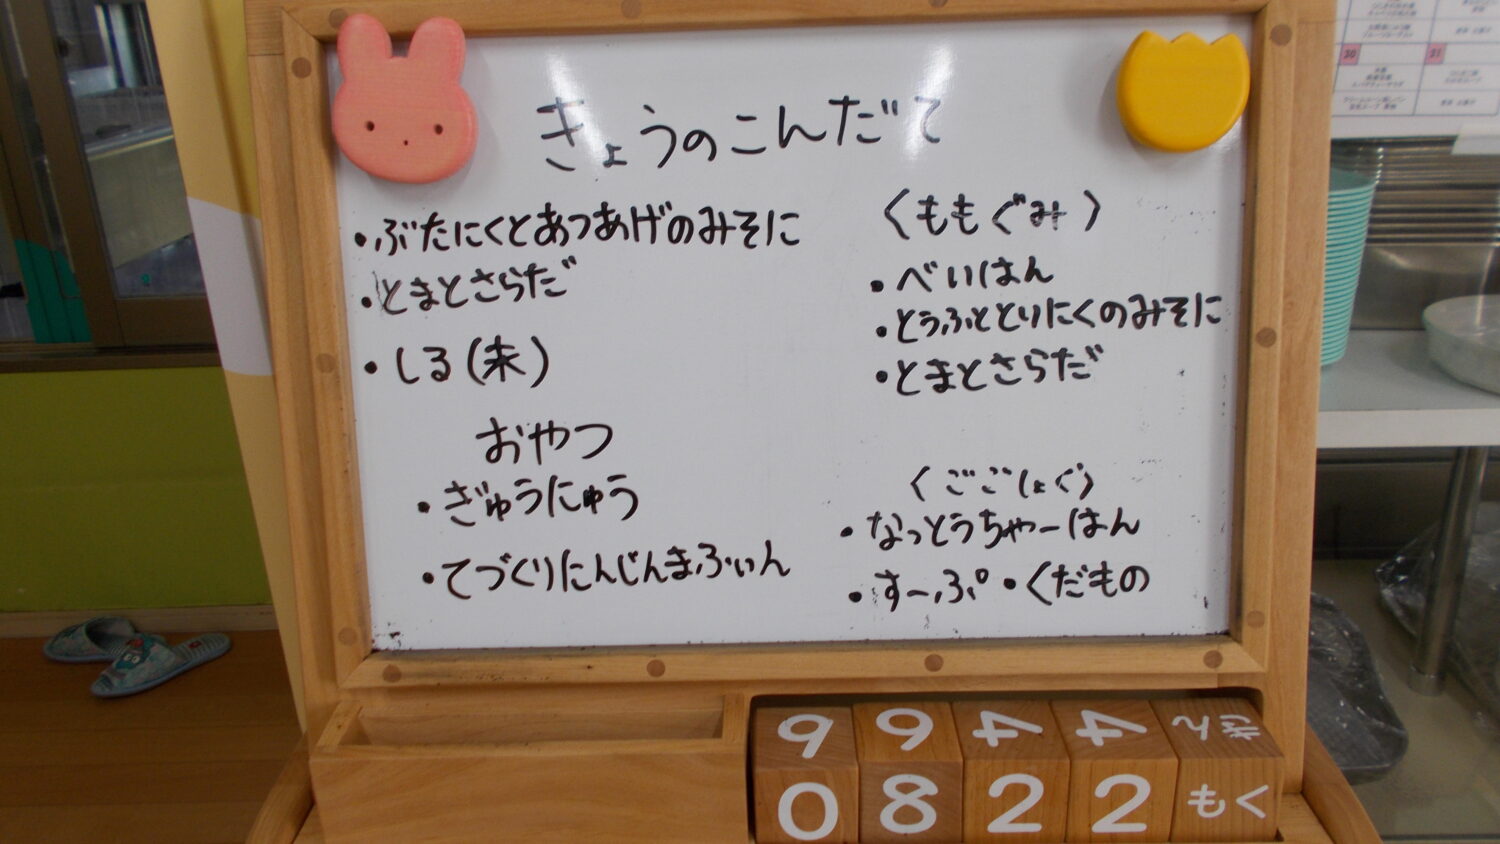 きょうのこんだて
・ぶたにくとあつあげのみそに
・とまとさらだ
・しる(未)
おやつ
・ぎゅうにゅう
・てづくりにんじんまふぃん
〈ももぐみ〉
・べいはん
・とうふととりにくのみそに
・とまとさらだ
〈ごごしょく〉
・なっとうちゃーはん
・すーぷ・くだもの
9 6 4 4 きん
0 8 2 2 もく
30
31